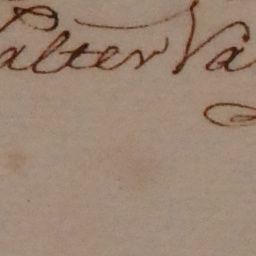 alter Va